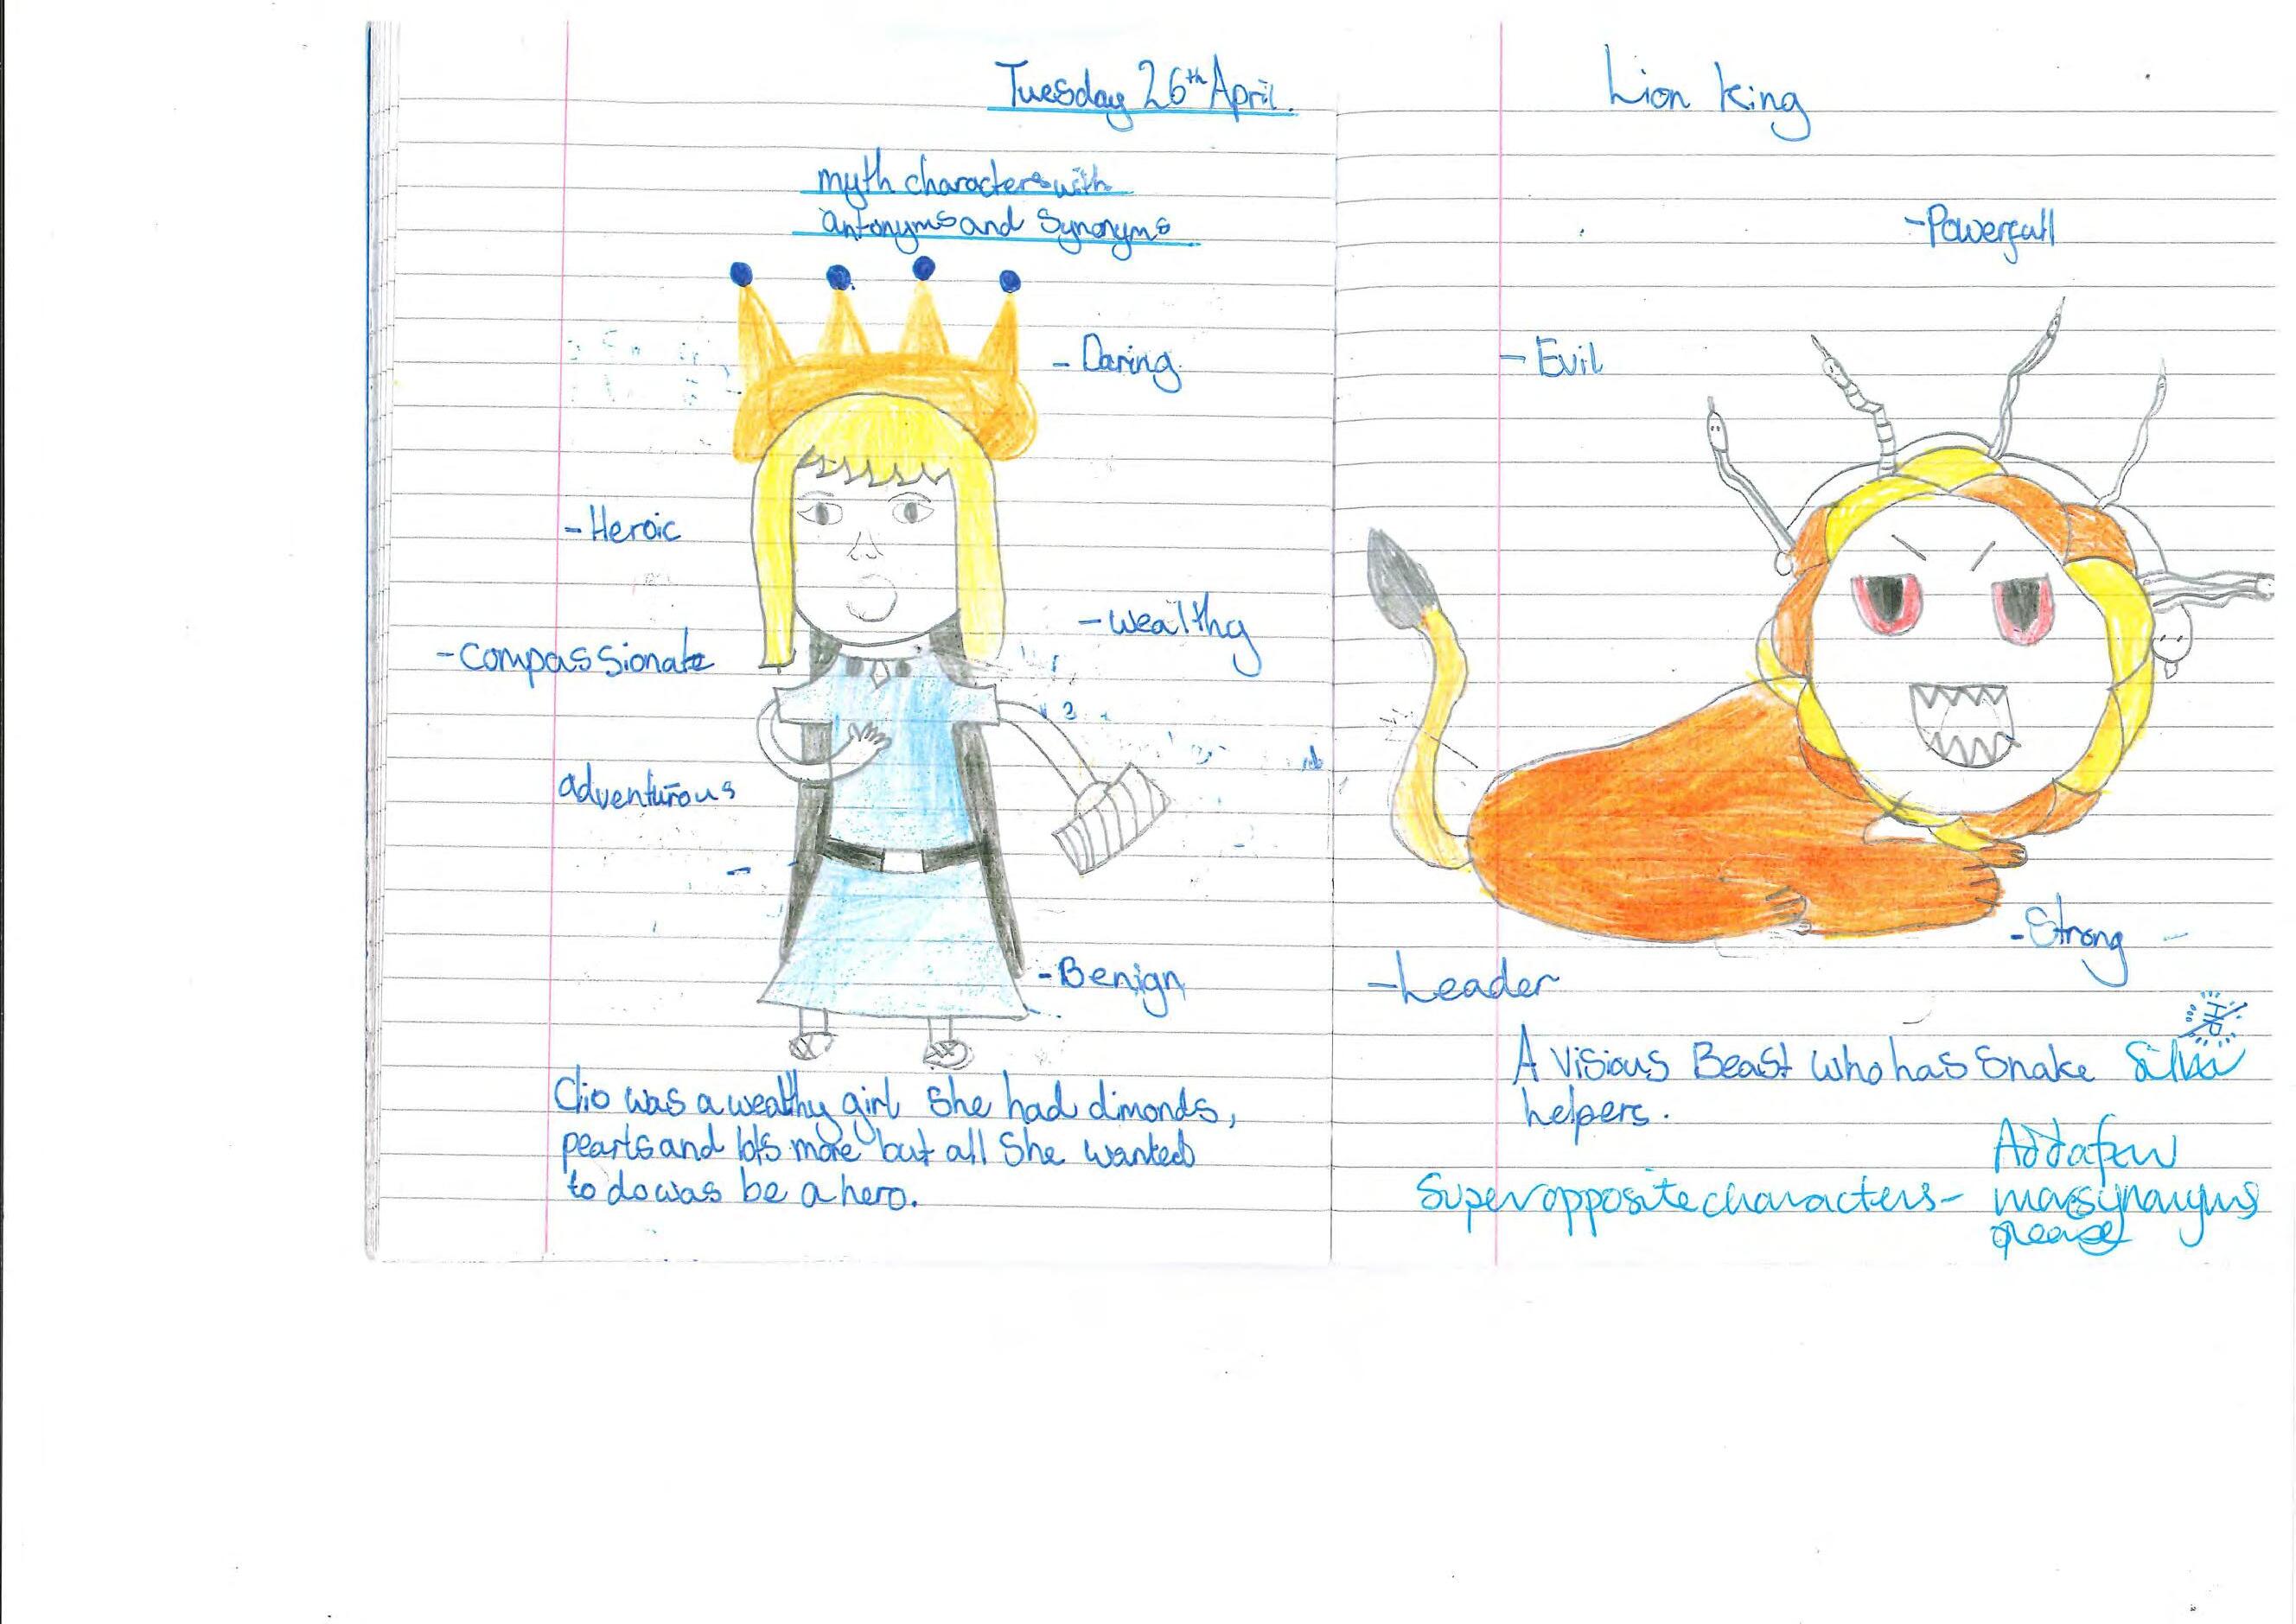 Tuesday 26th April.
myth characters with
antonyms and Synonyms
- Daring
- Heroic
- wealthy
- compassionate
adventurous
- Benign
Clio was a wealthy girl She had dimonds,
pearls and lots more but all She wanted
to do was be a hero.
Lion king
- Powerfull
- Evil
- Strong
- Leader
A Visious Beast who has Snake
helpers.
Super opposite characters -
Add a few
more synonyms
please